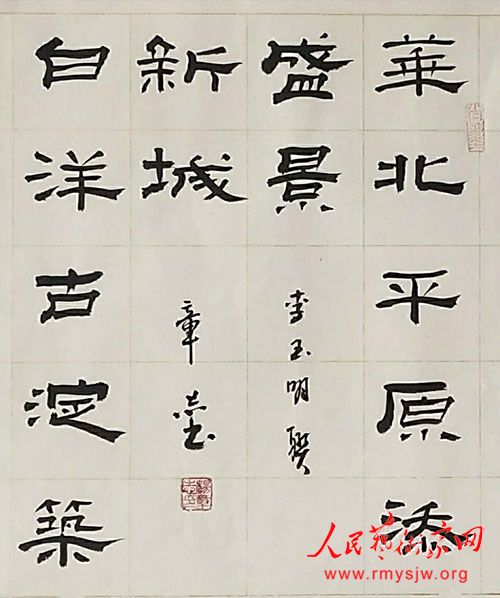 華北平原添
盛景
李玉明聯
白洋古淀築
新城
章志书
人民藝术家网
www.rmysjw.org